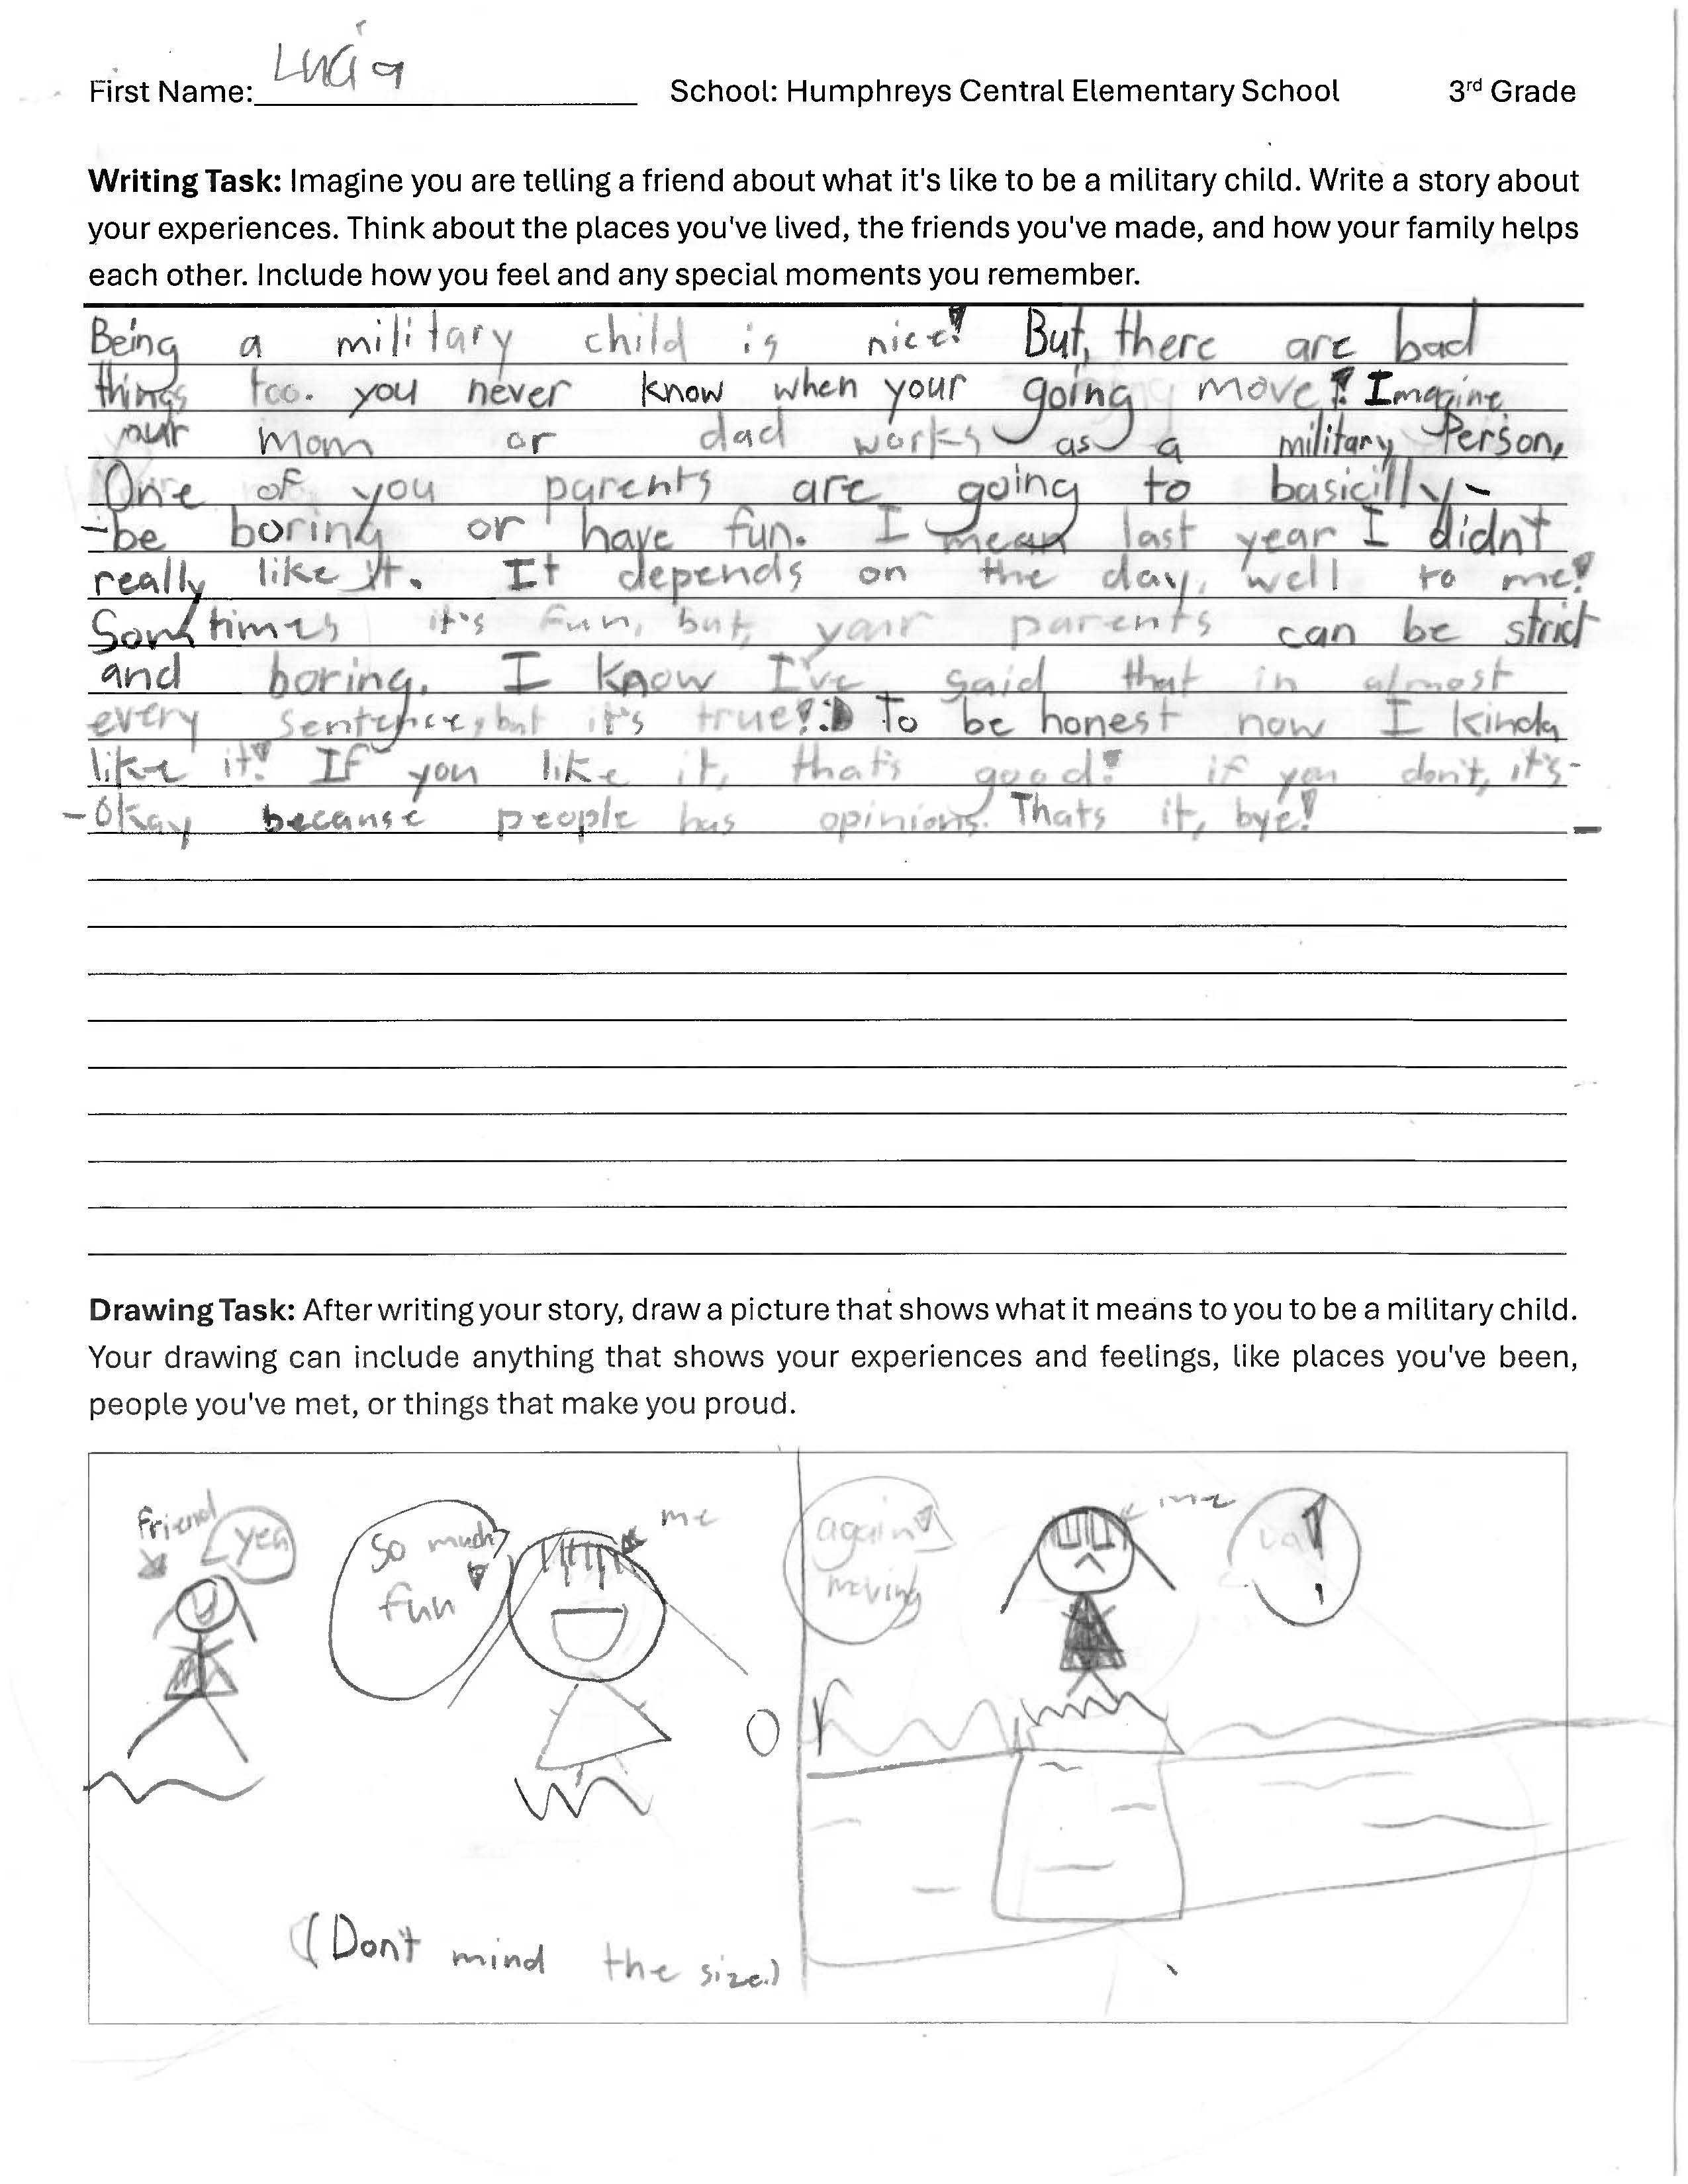 First Name: Lucia School: Humphreys Central Elementary School 3rd Grade
Writing Task: Imagine you are telling a friend about what it's like to be a military child. Write a story about
your experiences. Think about the places you've lived, the friends you've made, and how your family helps
each other. Include how you feel and any special moments you remember.
Being a military child is nice! But, there are bad
things too. you never know when your going move! Imagine
your mom or dad works as a military Person,
One of you parents are going to basicilly-
-be boring or have fun. I mean last year I didnt
really like it. It depends on the day, well to me!
Somtimes it's fun, but, your parents can be strict
and boring. I know I've said that in almost
every sentence, but it's true! :D To be honest now I kinda
like it! If you like it, thats good! if you don't, it's-
-okay because people has opinions. Thats it, bye!
Drawing Task: After writing your story, draw a picture that shows what it means to you to be a military child.
Your drawing can include anything that shows your experiences and feelings, like places you've been,
people you've met, or things that make you proud.
friend
yea
So much
fun
me
Or
again
moving
me
(Dont mind the size.)